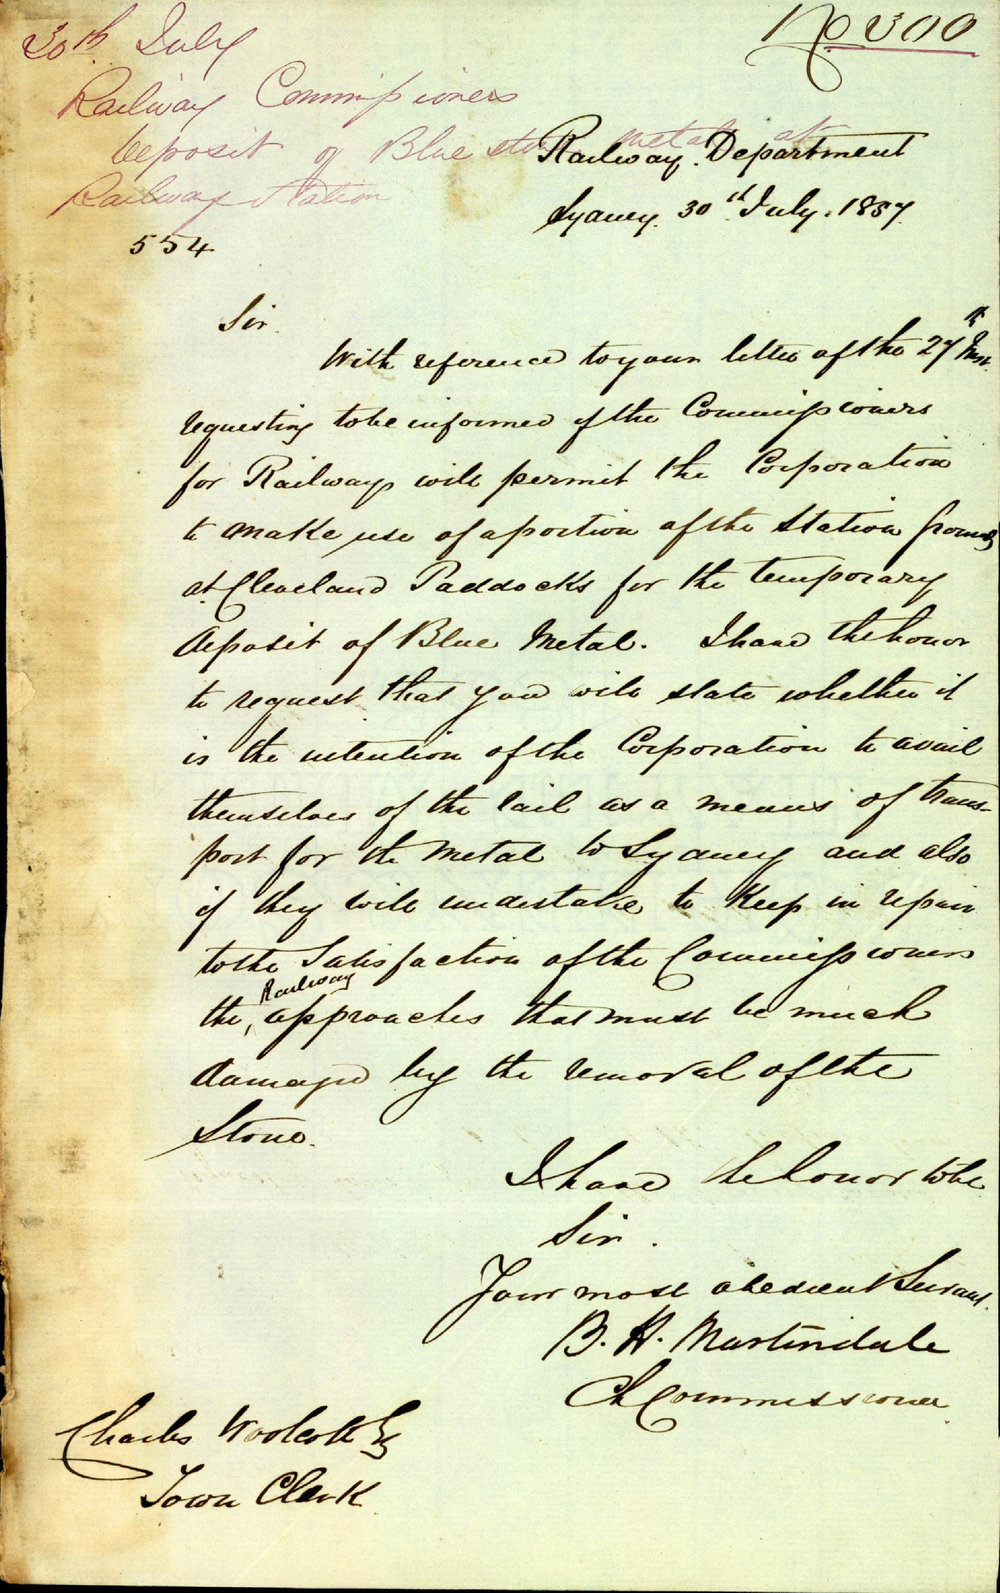 No 300
30th July
Railway Commissioners
deposit of Blue stone metal at
Railway Station
Railway Department
Sydney. 30th July. 1857.
554
Sir.
With reference to your letter of the 27th Inst.
requesting to be informed if the Commissioners
for Railways will permit the Corporation
to make use of a portion of the Station Grounds
at Cleveland Paddocks for the temporary
deposit of Blue Metal. I have the honor
to request that you will state whether it
is the intention of the Corporation to avail
themselves of the rail as a means of trans-
port for the Metal to Sydney and also
if they will undertake to keep in repair
to the Satisfaction of the Commissioners
the, Railway approaches that must be much
damaged by the removal of the
Stone.
I have the honor to be
Sir.
Your most obedient Servant.
B. H. Martindale
Ch Commissioner
Charles Woolcott Esq
Town Clerk